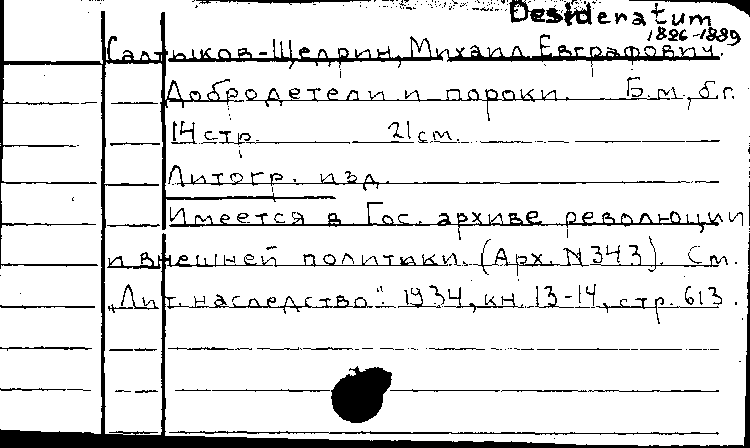 Desideratum
1826-1889
Салтыков-Щедрин, Михаил Евграфович.
Добродетели и пороки. Б.м., б.г.
14 стр. 21 см.
Литогр. изд.
Имеется в Гос. архиве революции
и внешней политики. (Арх. N 343). См.
„Лит. наследство". 1934, кн. 13-14, стр. 613.